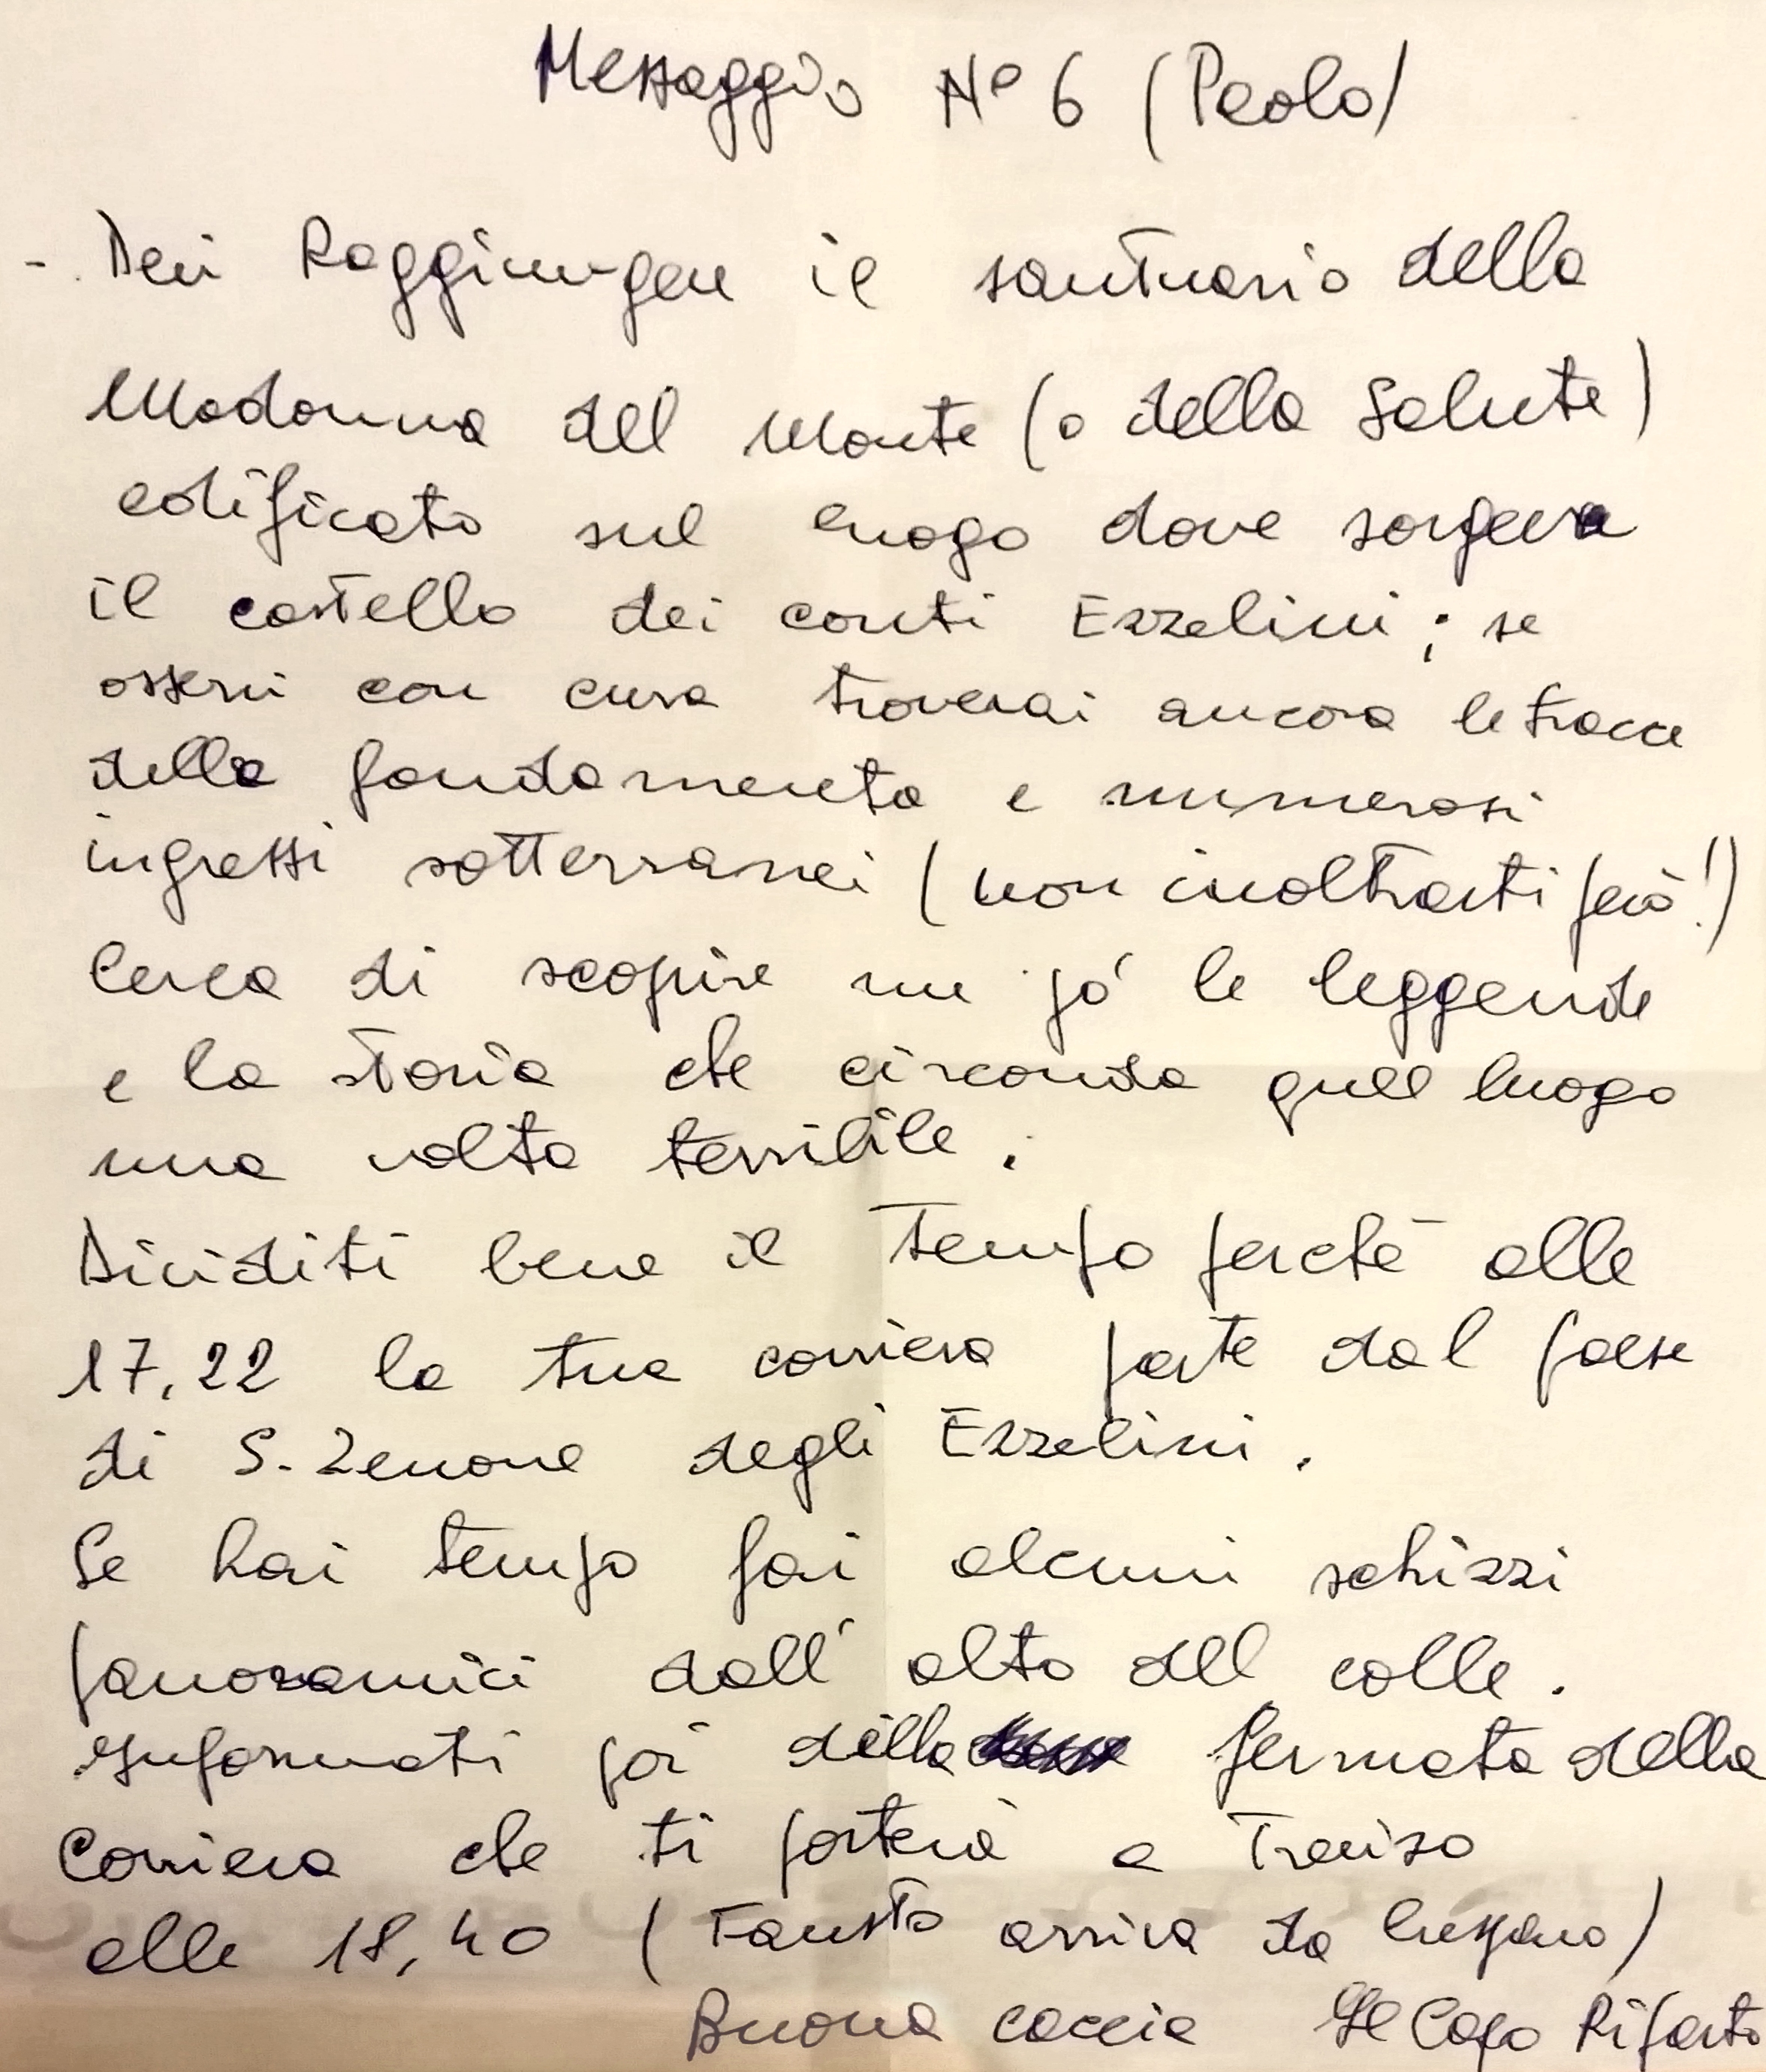 Messaggio N° 6 (Paolo)
- Devi Raggiungere il santuario della
Madonna del Monte (o della Salute)
edificato sul luogo dove sorgeva
il castello dei conti Ezzelini; se
osservi con cura troverai ancora le tracce
delle fondamenta e numerosi
ingressi sotterranei (non inoltrarti però!)
Cerca di scoprire un pó le leggende
e la storia che circonda quel luogo
una volta terribile.
Dividiti bene il Tempo perchè alle
17,22 la tua corriera parte dal paese
di S. Zenone degli Ezzelini.
Se hai tempo fai alcuni schizzi
panoramici dall'alto del colle.
Informati poi della fermata della
Corriera che ti porterà a Treviso
alle 18,40 (Fausto arriva da)
Buona caccia Il Capo Riparto